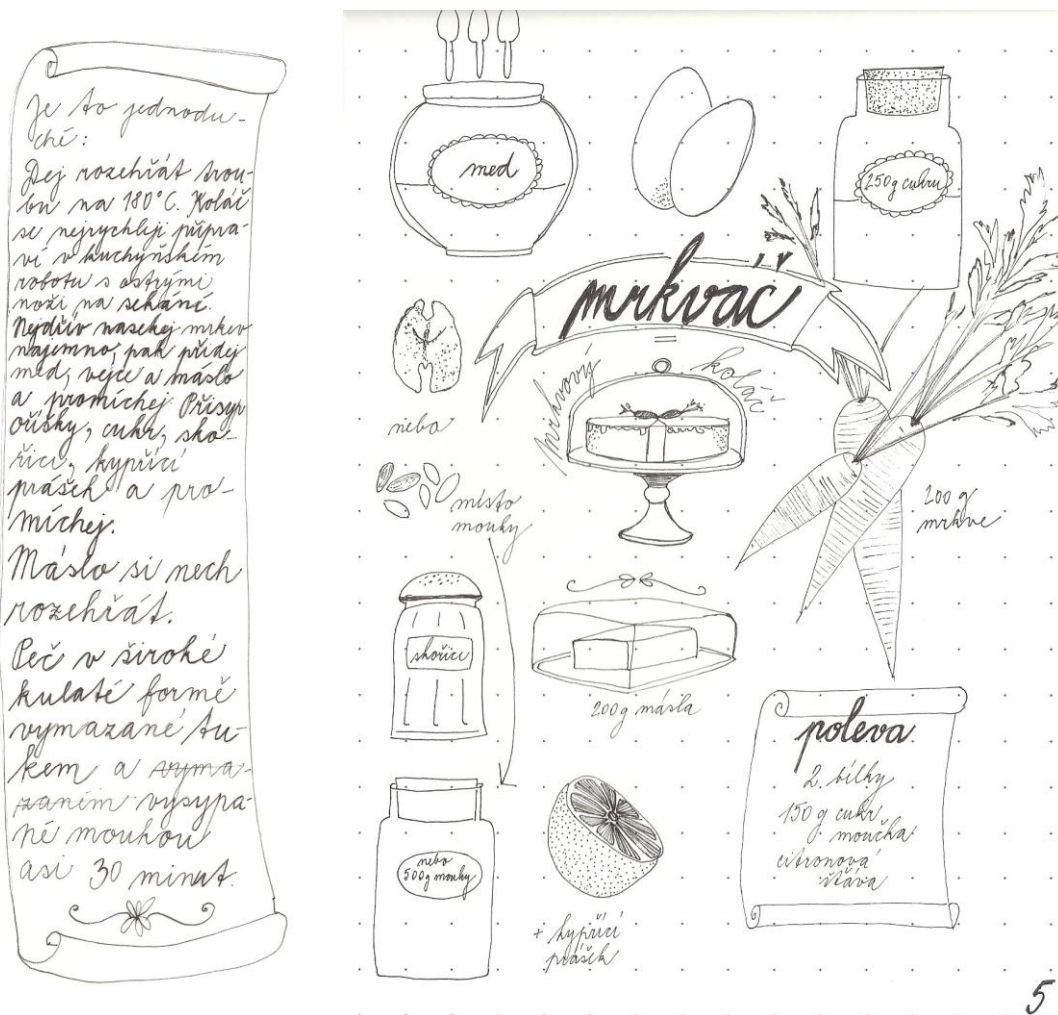 je to jednodu-
ché:
Dej rozehřát trou-
bu na 180°C. Koláč
se nejrychleji připra-
ví v kuchyňském
robotu s ostrými
noži na sekání.
Nejdřív nasekej mrkev
najemno, pak přidej
med, vejce a máslo
a promíchej Přisyp
oříšky, cukr, sko-
řici, kypřící
prášek a pro-
míchej.
Máslo si nech
rozehřát.
Peč v široké
kulaté formě
vymazané tu-
kem a vyma-
zaním vysypa-
né moukou
asi 30 minut.
med
250g cukru
mrkváč
mrkvový koláč
nebo
místo
mouky
200 g
mrkve
skořice
200g másla
nebo
500g mouky
+ kypřící
prášek
poleva
2 bílky
150 g cukr
moučka
citronová
šťáva
5